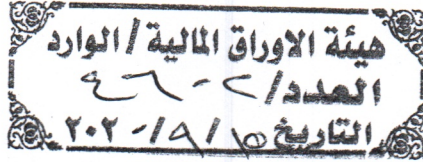 هيئة الاوراق المالية / الوارد
العدد/ ٤٦٠٢
التاريخ ١٥/٩/٢٠٢٠